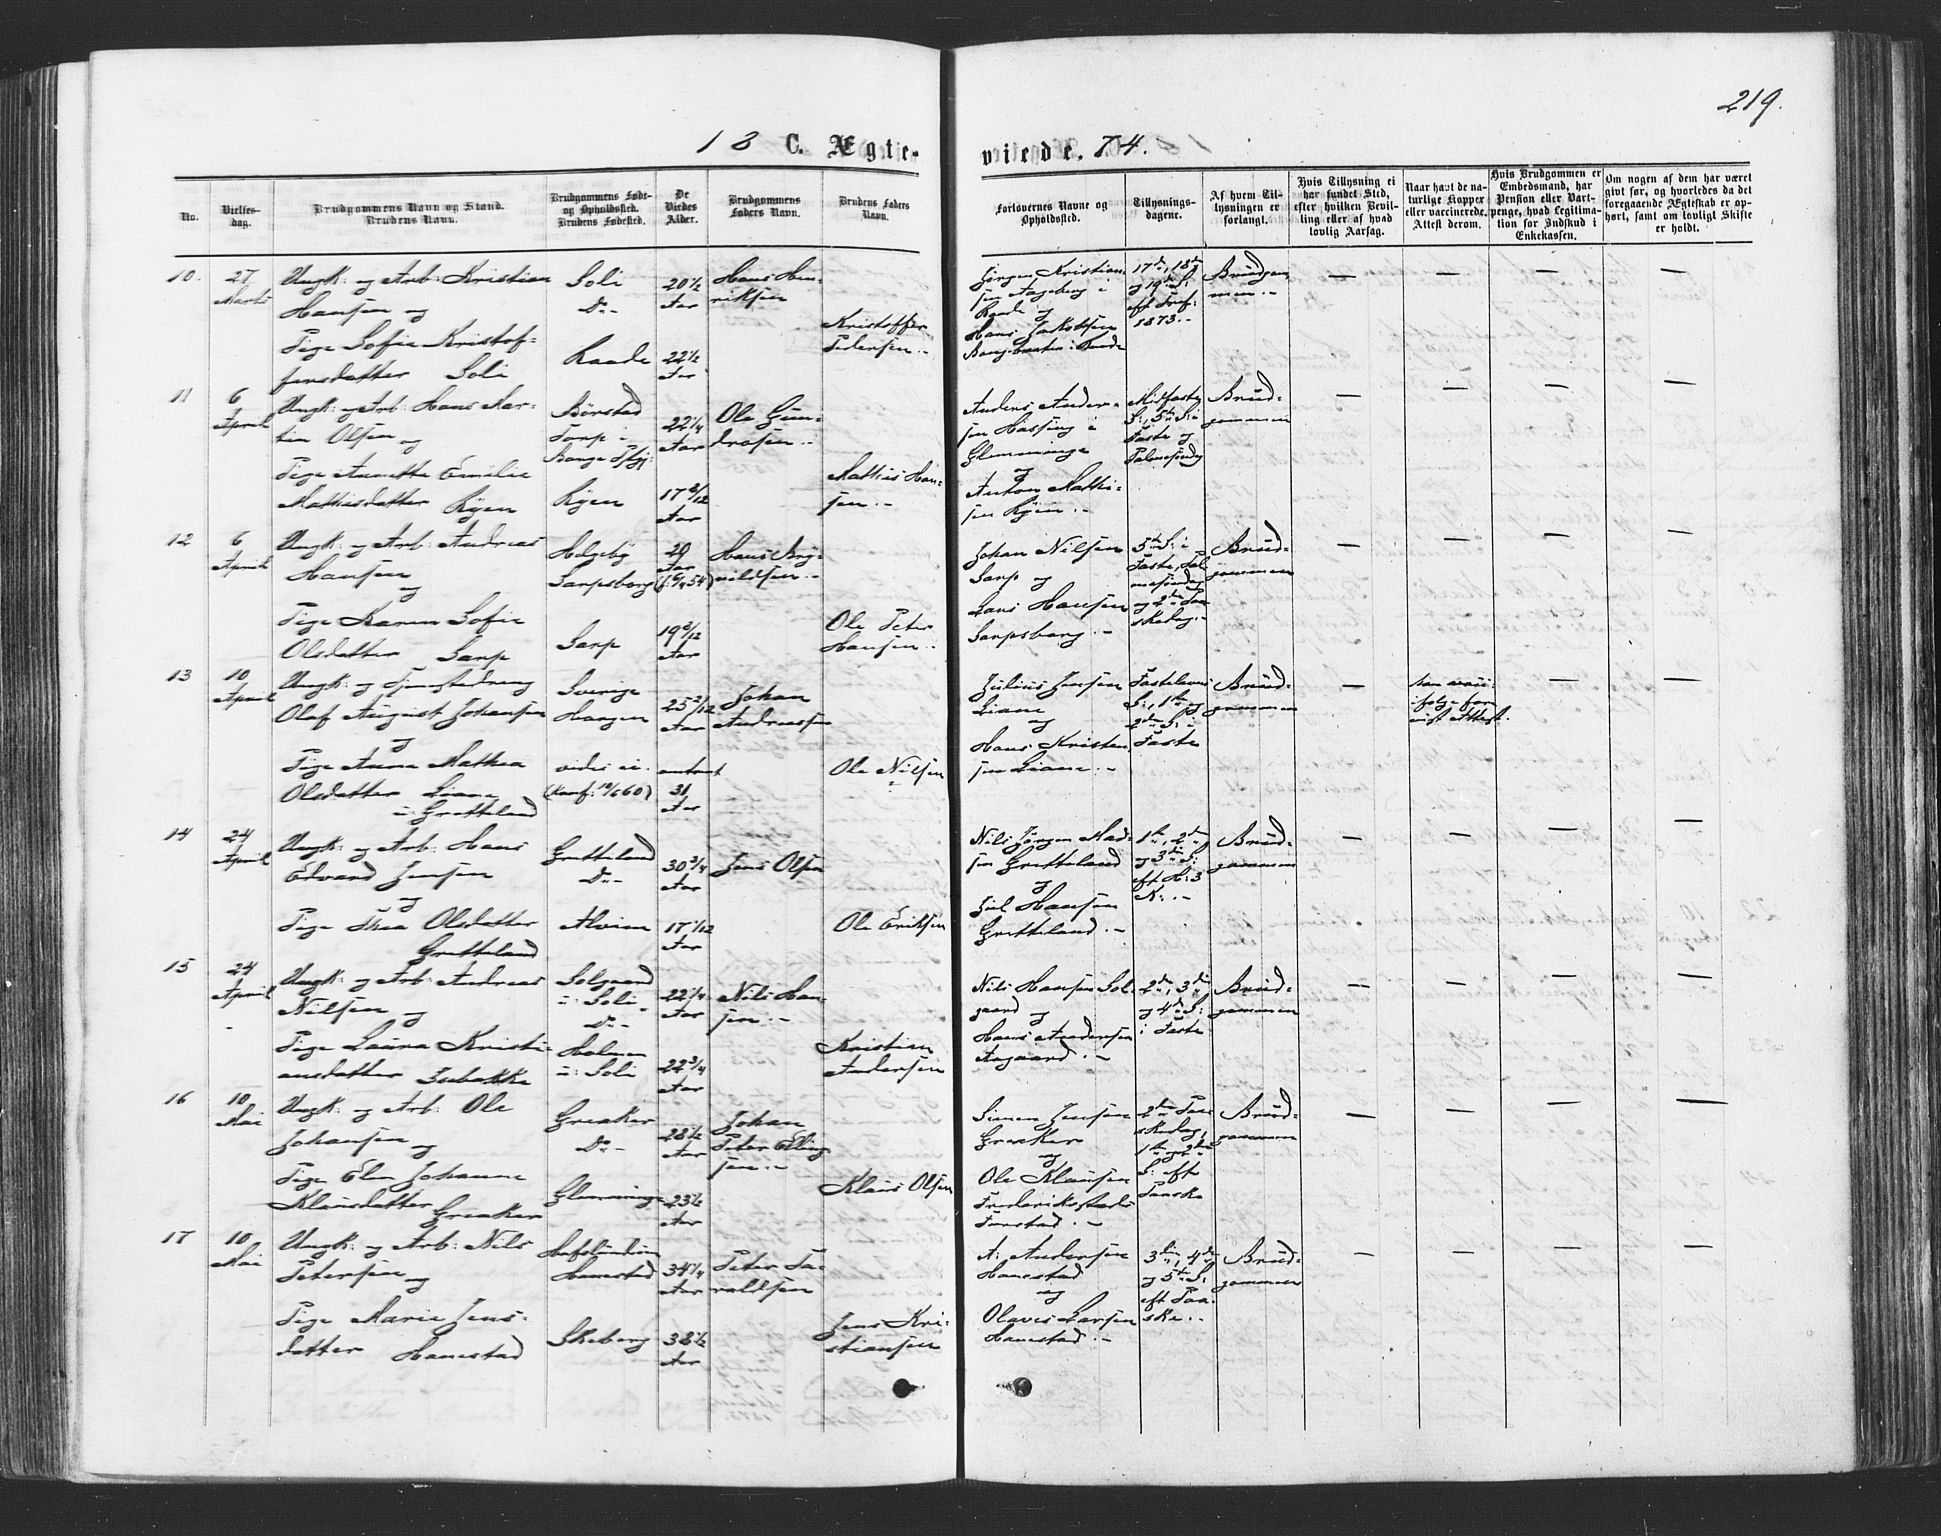 219.
18 C. Ægte-
viede. 74.
No.
Vielses-
dag.
Brudgommens Navn og Stand.
Brudens Navn.
Brudgommens Føde-
og Opholdssted.
Brudens Fødested.
De
Viedes
Alder.
Brudgommens
Faders Navn.
Brudens Faders
Navn.
Forlovernes Navne og
Opholdssted.
Tillysnings-
dagene.
Af hvem Til-
lysningen er
forlangt.
Hvis Tillysning ei
har fundet Sted,
efter hvilken Bevil-
ling eller af hvad
lovlig Aarsag.
Naar havt de na-
turlige Kopper
eller vaccinerede.
Attest derom.
Hvis Brudgommen er
Embedsmand, har
Pension eller Vart-
penge, hvad Legitima-
tion for Indskud i
Enkekassen.
Om nogen af dem har været
givt før, og hvorledes da det
foregaaende Ægteskab er op-
hørt, samt om lovligt Skifte
er holdt.
10.
27
Marts
Ungk: og Arb: Kristian
Hansen og
Pige Sofie Kristof-
fersdatter Soli
Soli
Do -
Raade
20 1/2
Aar
22 1/2
Aar
Hans Hen-
riksen
Kristoffer
Pedersen.-
Jørgen Kristian-
sen Aageberg i
Raade og
Hans Jakobsen
17de, 18de
og 19de S:
eft Tref:
1873.-
Brudgom-
men.-
— — — —
11
6
April
Ungk: og Arb: Hans Mar-
tin Olsen og
Pige Anette Emilie
Mathisdatter Kjen
Børstad
Torp i
Borge Pgj:
Kjen
22 1/4
Aar
17 8/12
Aar
Ole Gun-
drosen.-
Mathis Han-
sen.-
Anders Ander-
sen Hassing i
Glemminge
og
Anton Mathi-
sen Kjen.-
Midfaste
S:, 5te S: i
Faste og
Palmesøndag
Brud-
gommen
— — — —
12
6
April
Ungk: og Arb: Andreas
Hansen
og
Pige Karen Sofie
Olsdatter Sarp
Helgeby
Sarpsborg
Sarp
20
Aar
(f: 6/4 54)
19 8/12
Aar
Hans Bry-
nildsen.-
Ole Peter
Hansen.-
Johan Nilsen
Sarp og
Lars Hansen
Sarpsborg.-
5te S: i
Faste, Pal-
mesøndag
og 2den Paa-
skedag.-
Brud-
gommen
— — — —
13
10
April
Ungk: og Tjenestedreng
Olaf August Johansen
og
Pige Anne Mathea
Olsdatter Liane
i Grotteland
Sverige
Haugen
vides ei.
(Konf: 10/6 60)
25 2/12
Aar
omtrent
31
Aar
Johan
Andreassen
Ole Nilsen
Julius Jensen
Liane
og
Hans Kristen-
sen Liane.-
Fastelavns
S:, 1ste og
2den S: i
Faste
Brud-
gommen
—
— —
14
24
April
Ungk: og Arb: Hans
Edvard Jensen
og
Pige Thea Olsdatter
Grotteland
Grotteland
Do -
Alvim
30 3/4
Aar
17 1/12
Aar
Jens Olsen
Ole Eriksen
Nils Jørgen Mad-
sen Grotteland
og
Jul Hansen
Grotteland.-
1ste, 2den
og 3die S:
eft H: 3
K:.-
Brud-
gommen
— — — —
15
24
April
Ungk: og Arb: Andreas
Nilsen og
Pige Laura Kristi-
ansdatter Isebakke
Solgaard
i: Soli
Do -
Holmen
i: Soli
22 1/4
Aar
22 3/4
Aar
Nils Han-
sen.-
Kristian
Andersen
Nils Hansen Sol-
gaard og
Hans Andersen
Aagaard.-
2den, 3die
og 4de S:
i Faste
Brud-
gommen
— — — —
16
10
Mai
Ungk: og Arb: Ole
Johansen og
Pige Elen Johanne
Klausdatter Greaker
Greaker
Do -
Glemminge
28 1/2
Aar
23 1/2
Aar
Johan
Peter Eling-
sen.-
Klaus Olsen
Simen Jensen
Greaker
og
Ole Klausen
Frederikstads
Forstad.-
2den Paa-
skedag,
1ste og 2den
S: eft
Paaske
Brud-
gommen
— — — —
17
10
Mai
Ungk: og Arb: Nils
Petersen og
Pige Marie Jens-
datter Hanestad
Hafslundsøen
Hanestad
Skeberg
34 1/4
Aar
38 1/2
Aar
Peter Ta-
raldsen
Jens Kri-
stiansen
A: Andersen
Hanestad
og
Olaves Larsen
Hanestad.-
3die, 4de
og 5te S:
eft Paa-
ske.-
Brud-
gommen
— — — —